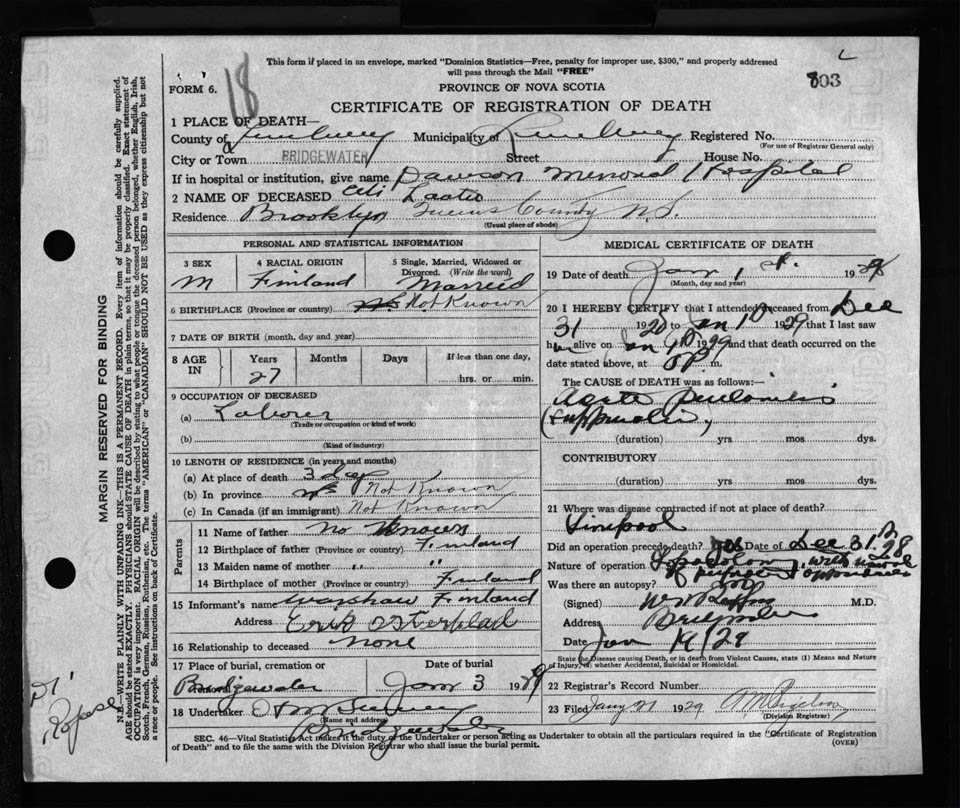 This form if placed in an envelope, marked "Dominion Statistics—Free, penalty for improper use, $300," and properly addressed
will pass through the Mail "FREE"
803
FORM 6.
18
PROVINCE OF NOVA SCOTIA
CERTIFICATE OF REGISTRATION OF DEATH
1 PLACE OF DEATH—
County of Lunenburg Municipality of Lunenburg Registered No.
(For use of Registrar General only)
City or Town BRIDGEWATER Street House No.
If in hospital or institution, give name Dawson Memorial Hospital
2 NAME OF DECEASED Laatio
Residence Brooklyn Queens County N.S.
(Usual place of abode)
PERSONAL AND STATISTICAL INFORMATION
3 SEX 4 RACIAL ORIGIN 5 Single, Married, Widowed or Divorced. (Write the word)
M Finland Married
6 BIRTHPLACE (Province or country) Not Known
7 DATE OF BIRTH (month, day and year)
8 AGE IN Years Months Days If less than one day,
27 hrs. or min.
9 OCCUPATION OF DECEASED
(a) Laborer
(Trade or occupation or kind of work)
(b)
(Kind of industry)
10 LENGTH OF RESIDENCE (in years and months)
(a) At place of death 3 day
(b) In province Not Known
(c) In Canada (if an immigrant) Not Known
Parents
11 Name of father No
12 Birthplace of father (Province or country) Finland
13 Maiden name of mother " "
14 Birthplace of mother (Province or country) Finland
15 Informant's name Finland
Address Eric
16 Relationship to deceased none
17 Place of burial, cremation or Date of burial
Bridgewater Jan 3 1929
18 Undertaker
(Name and address)
Bridgewater
MEDICAL CERTIFICATE OF DEATH
19 Date of death Jan 1 st. 192
(Month, day and year)
20 I HEREBY CERTIFY that I attended deceased from Dec
31 192 to Jan 1 1929 that I last saw
h alive on Jan 1929 and that death occurred on the
date stated above, at m.
The CAUSE OF DEATH was as follows:—
Acute
(duration) yrs mos dys.
CONTRIBUTORY
(duration) yrs mos dys.
21 Where was disease contracted if not at place of death?
Liverpool
Did an operation precede death? Date of Dec 31. 28
Nature of operation
Was there an autopsy?
(Signed) M.D.
Address
Date Jan 29
State the Disease causing Death, or in death from Violent Causes, state (1) Means and Nature
of Injury, (2) whether Accidental, Suicidal or Homicidal.
22 Registrars Record Number
23 Filed Jany 21 1929
(Division Registrar)
SEC. 46—Vital Statistics Act makes it the duty of the Undertaker or person acting as Undertaker to obtain all the particulars required in the "Certificate of Registration
of Death" and to file the same with the Division Registrar who shall issue the burial permit.
(OVER)
MARGIN RESERVED FOR BINDING
N.B.—WRITE PLAINLY WITH UNFADING INK—THIS IS A PERMANENT RECORD. Every item of information should be carefully supplied.
AGE should be stated EXACTLY. PHYSICIANS should STATE CAUSE OF DEATH in plain terms, so that it may be properly classified. Exact statement of
OCCUPATION is very important. RACIAL ORIGIN will be described by stating to what people or tongue the deceased person belonged, whether English, Irish,
Scotch, French, German, Russian, Ruthenian, etc. The terms "AMERICAN" or "CANADIAN" SHOULD NOT BE USED as they express citizenship but not
a race or people. See instructions on back of Certificate.